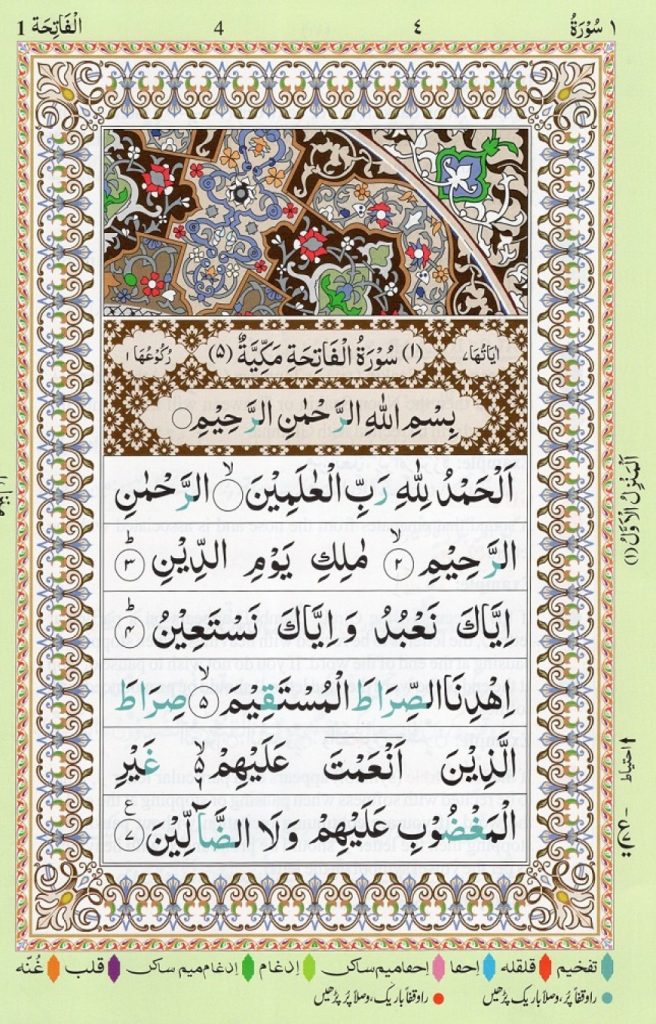 ١ سُوْرَةُ ٤ 4 اَلْفَاتِحَة 1
اٰيَاتُهَا ٧ (١) سُوْرَةُ الْفَاتِحَةِ مَكِّيَّةٌ (٥) رُكُوْعُهَا ١
بِسْمِ اللّٰهِ الرَّحْمٰنِ الرَّحِيْمِ
اَلْحَمْدُ لِلّٰهِ رَبِّ الْعٰلَمِيْنَ ۙ ١ الرَّحْمٰنِ
الرَّحِيْمِ ۙ ٢ مٰلِكِ يَوْمِ الدِّيْنِ ؕ ٣
اِيَّاكَ نَعْبُدُ وَاِيَّاكَ نَسْتَعِيْنُ ؕ ٤
اِهْدِنَا الصِّرَاطَ الْمُسْتَقِيْمَ ۙ ٥ صِرَاطَ
الَّذِيْنَ اَنْعَمْتَ عَلَيْهِمْ ۙ٥ غَيْرِ
الْمَغْضُوْبِ عَلَيْهِمْ وَلَا الضَّآلِّيْنَ ٧ ع
اَلْمَنْزِلُ الْاَوَّلُ (١)
احتیاط
تفخیم قلقلہ اِحفا اِحفامیم ساکن اِدغام اِدغام میم ساکن قلب غُنّہ
راوقفاً پُر، وصلاً باریک پڑھیں راوقفاً باریک، وصلاً پُر پڑھیں